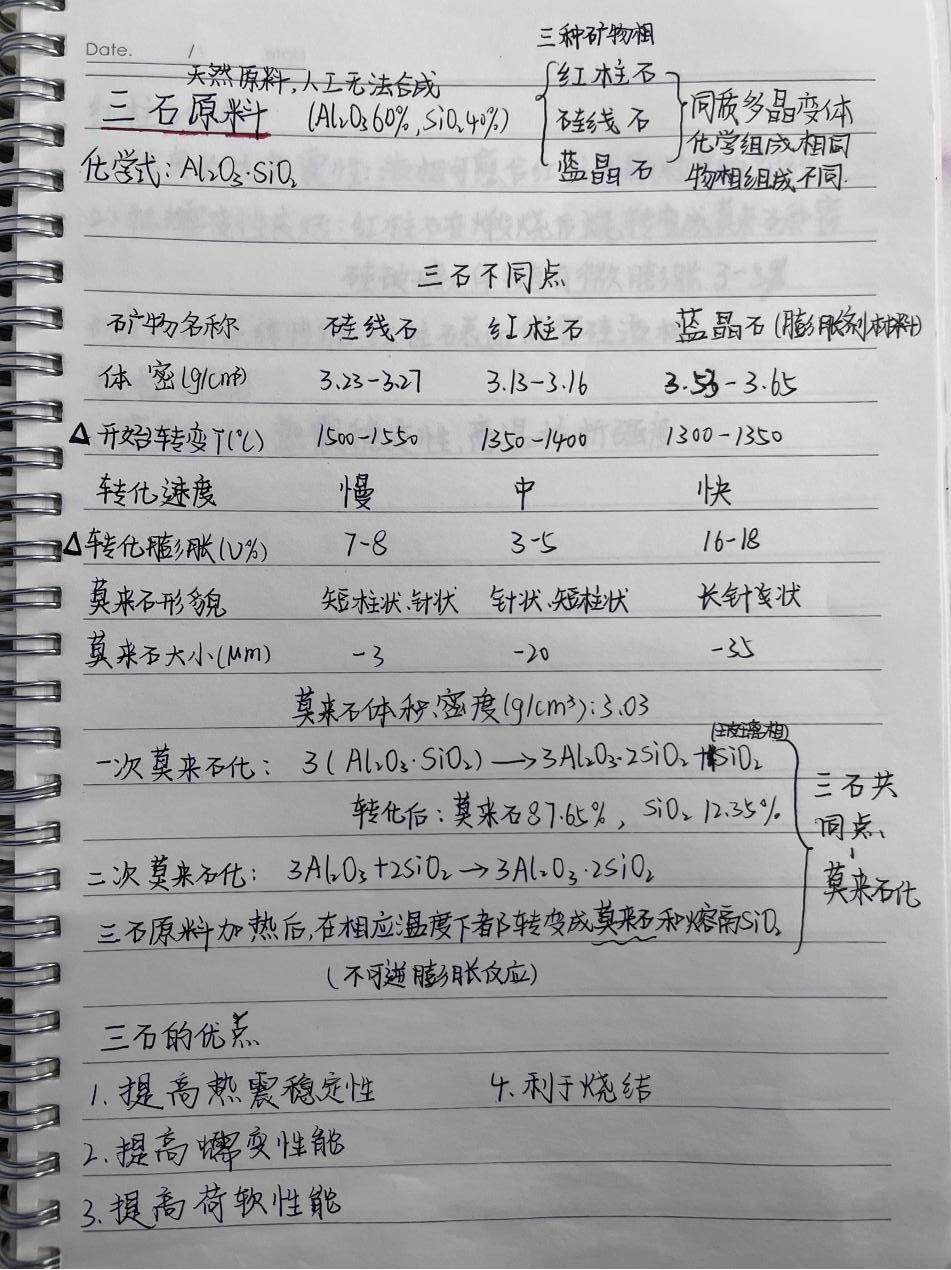 Date. /
三种矿物相
天然原料,人工无法合成
三石原料 (Al₂O₃60%, SiO₂40%)
红柱石
硅线石
蓝晶石
同质多晶变体
化学组成相同
物相组成不同.
化学式: Al₂O₃·SiO₂
三石不同点
矿物名称 硅线石 红柱石 蓝晶石(膨胀剂材料)
体密(g/cm³) 3.23-3.27 3.13-3.16 3.53-3.65
Δ开始转变T(℃) 1500-1550 1350-1400 1300-1350
转化速度 慢 中 快
Δ转化膨胀(V%) 7-8 3-5 16-18
莫来石形貌 短柱状、针状 针状、短柱状 长针状
莫来石大小(μm) -3 -20 -35
莫来石体积密度(g/cm³):3.03
(玻璃相)
一次莫来石化: 3(Al₂O₃·SiO₂)→3Al₂O₃·2SiO₂+SiO₂
转化后:莫来石87.65%, SiO₂ 12.35%
二次莫来石化: 3Al₂O₃+2SiO₂→3Al₂O₃·2SiO₂
三石原料加热后,在相应温度下都转变成莫来石和熔离SiO₂
(不可逆膨胀反应)
三石共
同点、
莫来石化
三石的优点
1.提高热震稳定性 4.利于烧结
2.提高蠕变性能
3.提高荷软性能